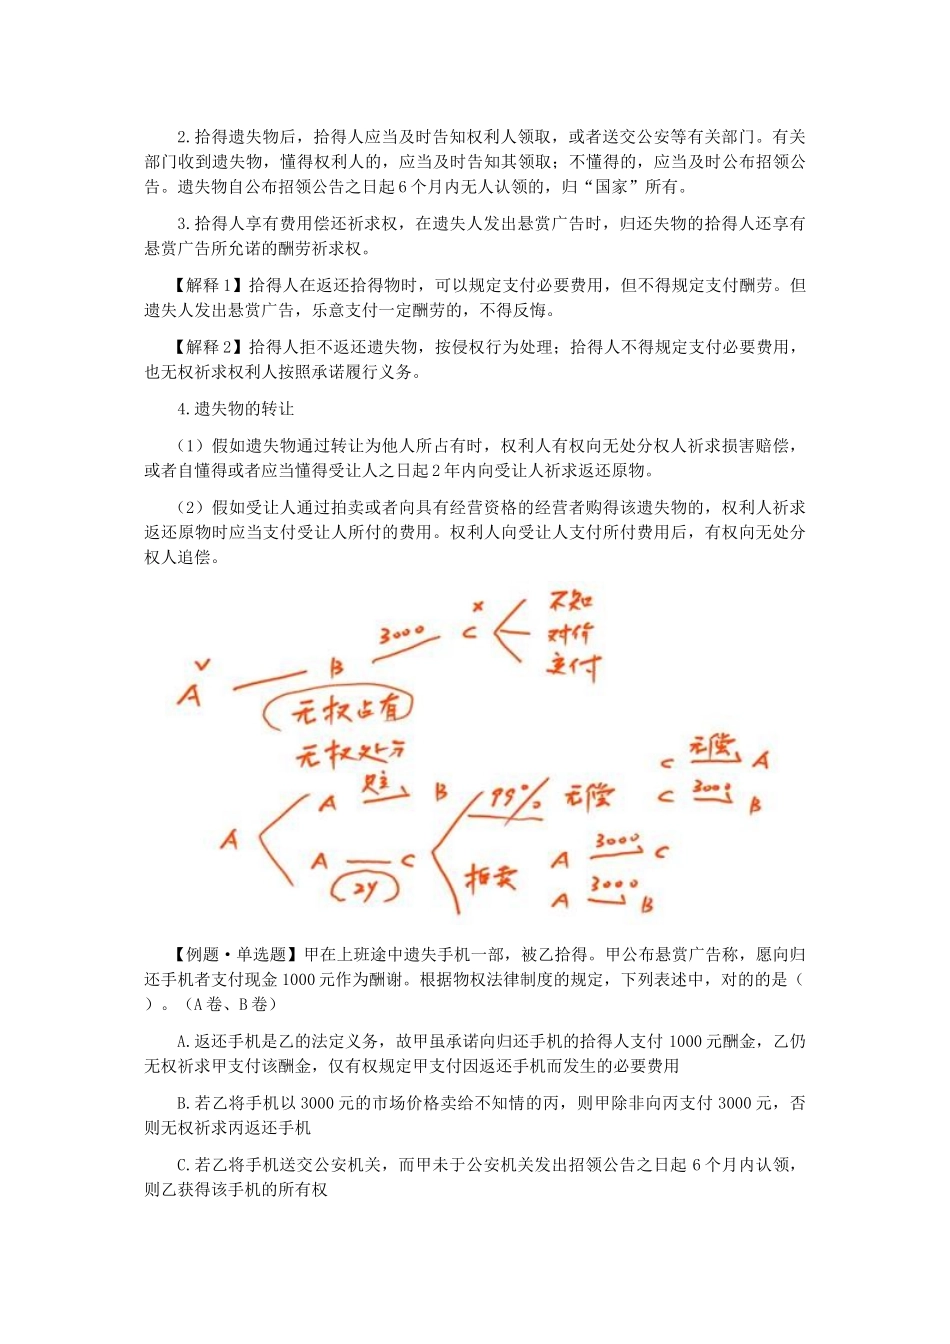 2.拾得遗失物后，拾得人应当及时告知权利人领取，或者送交公安等有关部门。有关
部门收到遗失物，懂得权利人的，应当及时告知其领取；不懂得的，应当及时公布招领公
告。遗失物自公布招领公告之日起6个月内无人认领的，归“国家”所有。
3.拾得人享有费用偿还祈求权，在遗失人发出悬赏广告时，归还失物的拾得人还享有
悬赏广告所允诺的酬劳祈求权。
【解释1】拾得人在返还拾得物时，可以规定支付必要费用，但不得规定支付酬劳。但
遗失人发出悬赏广告，乐意支付一定酬劳的，不得反悔。
【解释2】拾得人拒不返还遗失物，按侵权行为处理；拾得人不得规定支付必要费用，
也无权祈求权利人按照承诺履行义务。
4.遗失物的转让
（1）假如遗失物通过转让为他人所占有时，权利人有权向无处分权人祈求损害赔偿，
或者自懂得或者应当懂得受让人之日起2年内向受让人祈求返还原物。
（2）假如受让人通过拍卖或者向具有经营资格的经营者购得该遗失物的，权利人祈求
返还原物时应当支付受让人所付的费用。权利人向受让人支付所付费用后，有权向无处分
权人追偿。
A B 3000 C x 不知
对价
交付
无权占有
无权处分
C 无偿 A
C 3000 B
A A B 99% 无偿
A C 2Y 拍卖 A 3000 C
A 3000 B
【例题·单选题】甲在上班途中遗失手机一部，被乙拾得。甲公布悬赏广告称，愿向归
还手机者支付现金1000元作为酬谢。根据物权法律制度的规定，下列表述中，对的的是（
）。（A卷、B卷）
A.返还手机是乙的法定义务，故甲虽承诺向归还手机的拾得人支付1000元酬金，乙仍
无权祈求甲支付该酬金，仅有权规定甲支付因返还手机而发生的必要费用
B.若乙将手机以3000元的市场价格卖给不知情的丙，则甲除非向丙支付3000元，否
则无权祈求丙返还手机
C.若乙将手机送交公安机关，而甲未于公安机关发出招领公告之日起6个月内认领，
则乙获得该手机的所有权